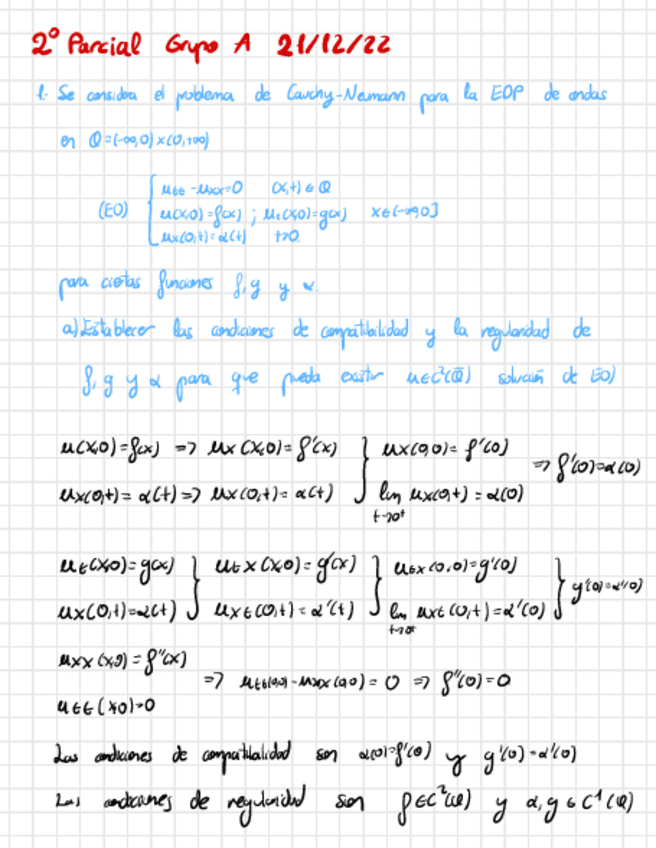 2º Parcial Grupo A 21/12/22
1. Se considera el problema de Cauchy-Neumann para la EDP de ondas
en Q=(-∞,0)×(0,+∞)
(EO) { utt - uxx=0 (x,t)∈Q
u(x,0)=f(x) ; ut(x,0)=g(x) x∈(-∞,0]
ux(0,t)=α(t) t≥0
para ciertas funciones f, g y α.
a) Establecer las condiciones de compatibilidad y la regularidad de
f, g y α para que pueda existir u∈C²(Q̄) solución de EO)
u(x,0)=f(x) => ux(x,0)=f'(x) } ux(0,0)=f'(0) => f'(0)=α(0)
ux(0,t)=α(t) => ux(0,t)=α(t) } lim ux(0,t)=α(0)
t→0⁺
ut(x,0)=g(x) } utx(x,0)=g'(x) } utx(0,0)=g'(0) } g'(0)=α'(0)
ux(0,t)=α(t) } uxt(0,t)=α'(t) } lim uxt(0,t)=α'(0)
t→0⁺
uxx(x,0)=f''(x)
=> utt(0,0)-uxx(0,0)=0 => f''(0)=0
utt(x,0)=0
Las condiciones de compatibilidad son α(0)=f'(0) y g'(0)=α'(0)
Las condiciones de regularidad son f∈C²(Q) y α,g∈C¹(Q)